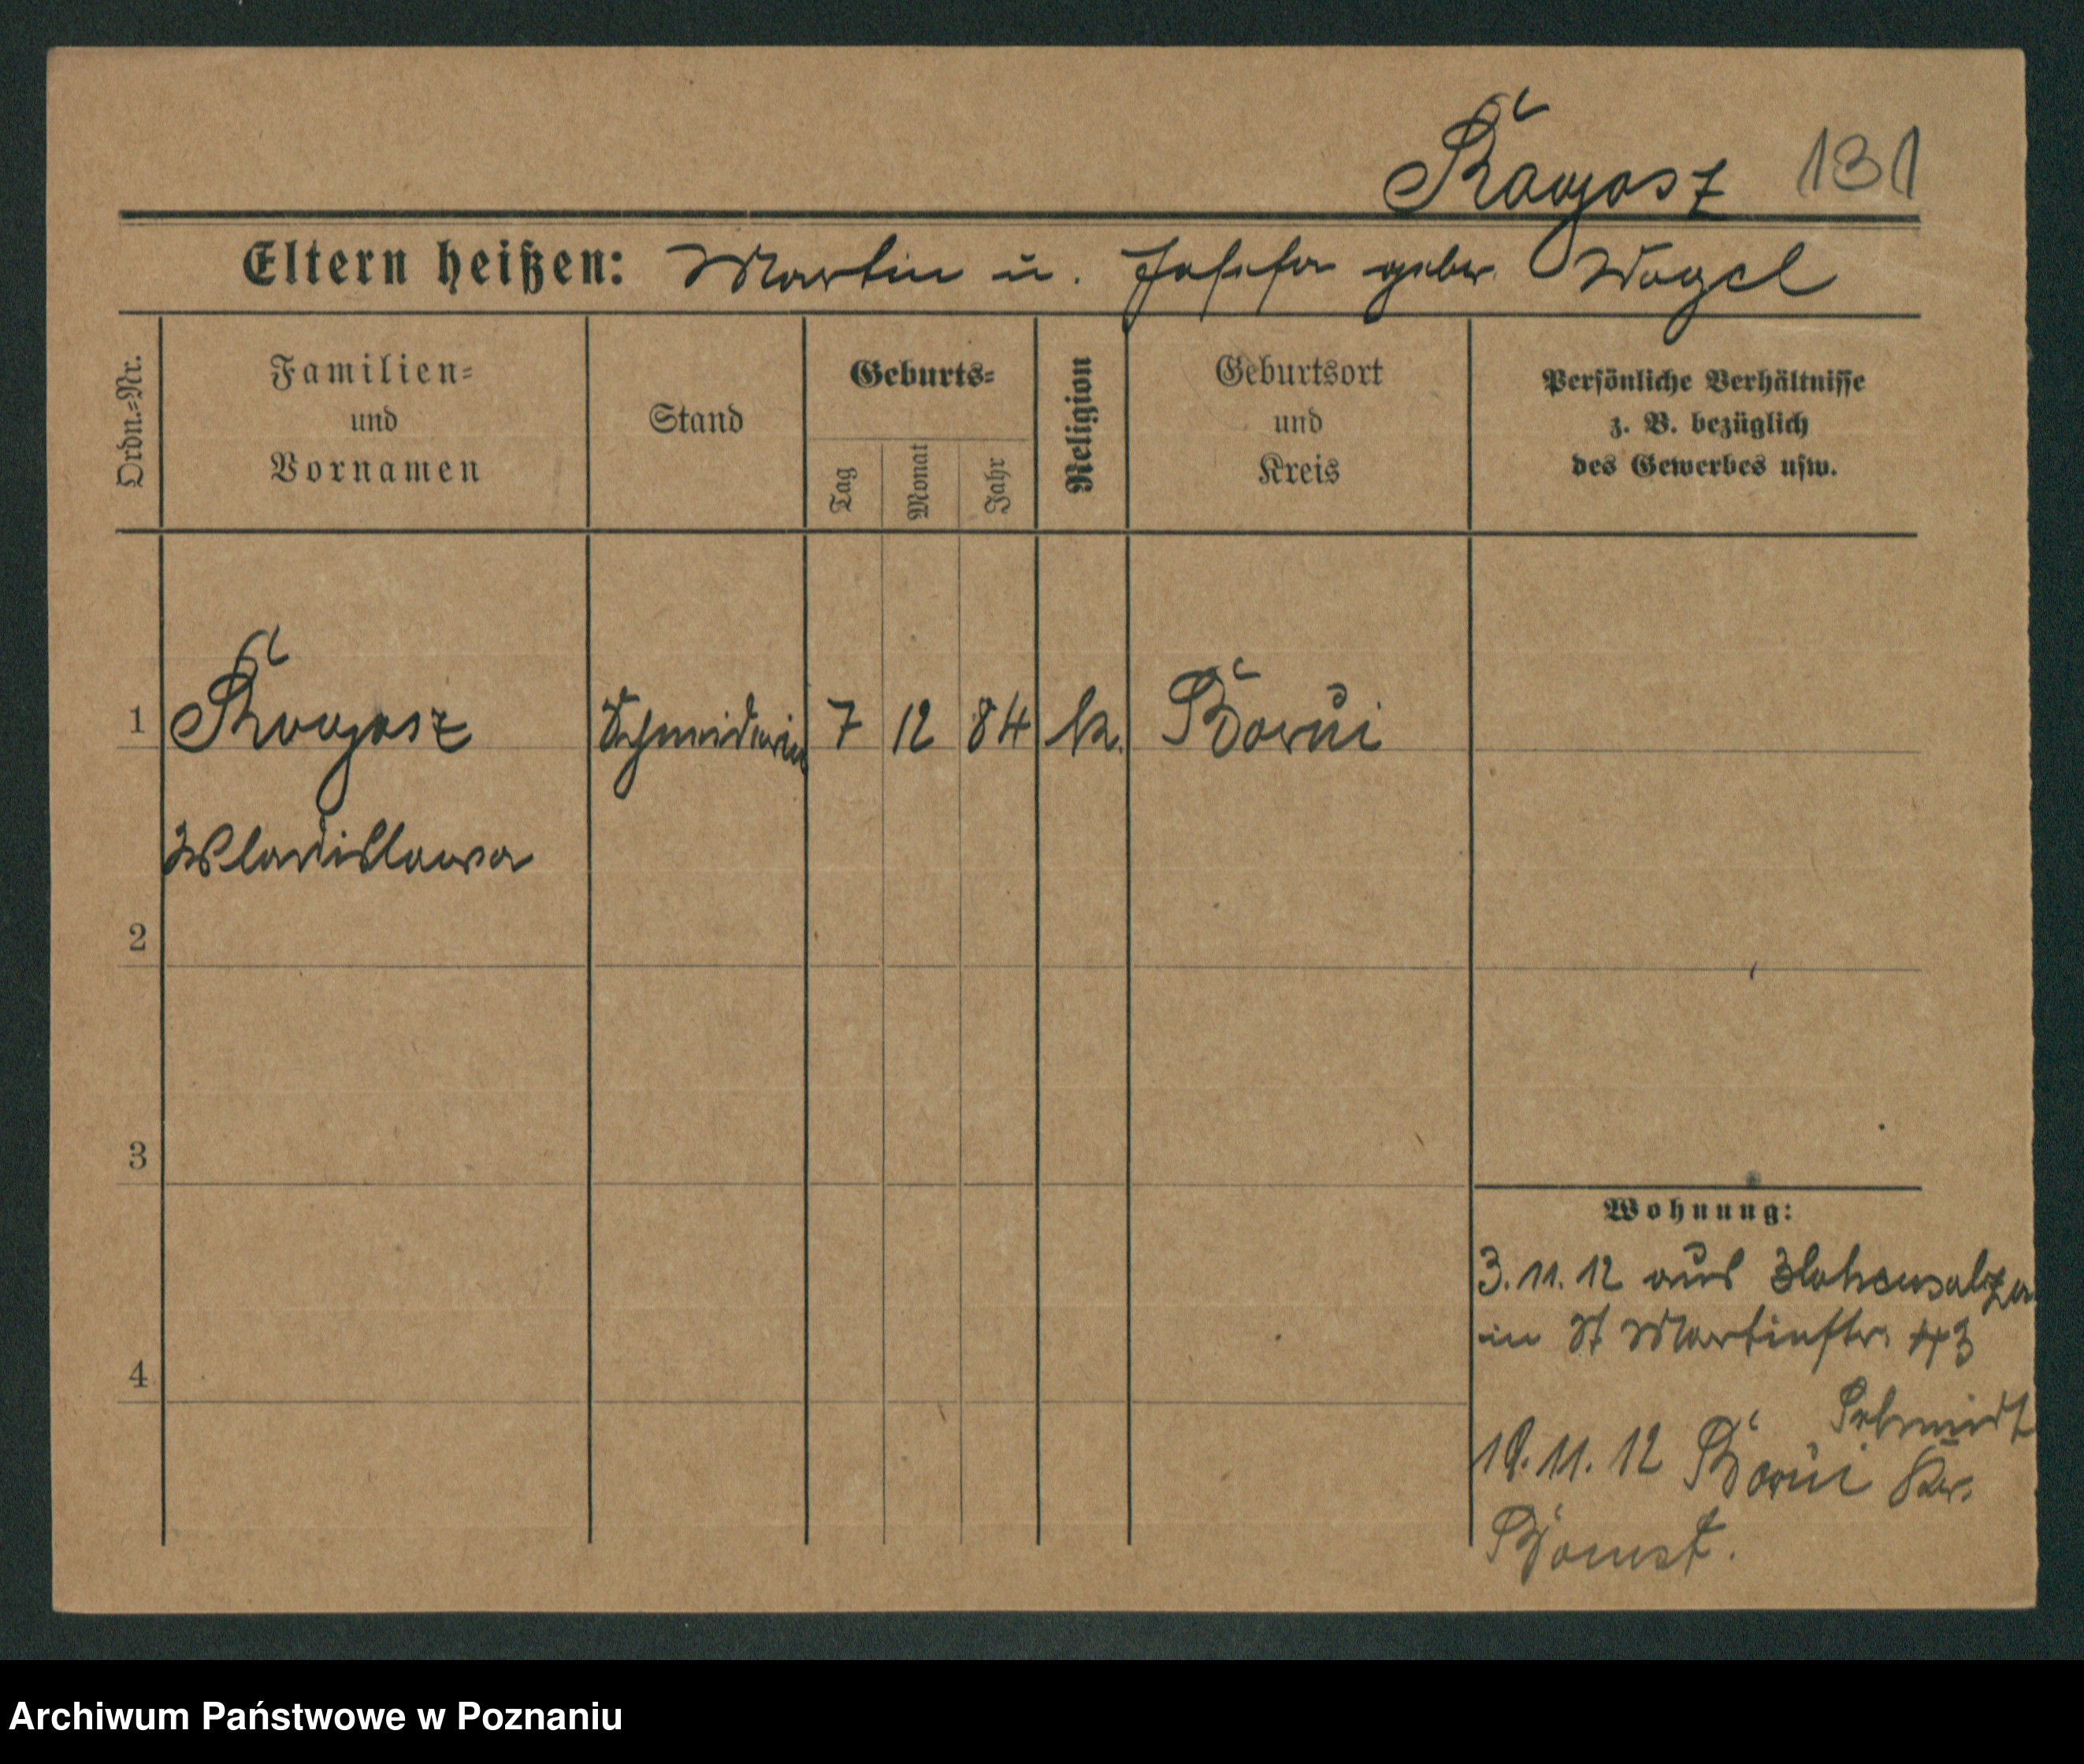 Rogosz 131
Eltern heißen: Martin u. Josefa geber. Vogel
Ordn.-Nr.
Familien-
und
Vornamen
Stand
Geburts-
Tag
Monat
Jahr
Religion
Geburtsort
und
Kreis
Persönliche Verhältnisse
z. B. bezüglich
des Gewerbes usw.
1 Rogosz Schneiderin 7 12 84 k. Borui
Wladislawa
2
3
4
Wohnung:
3.11.12 aus Hohensalza
in St Martinstr. 43
Schmidt
19.11.12 Borui Kr.
Bomst.
Archiwum Państwowe w Poznaniu